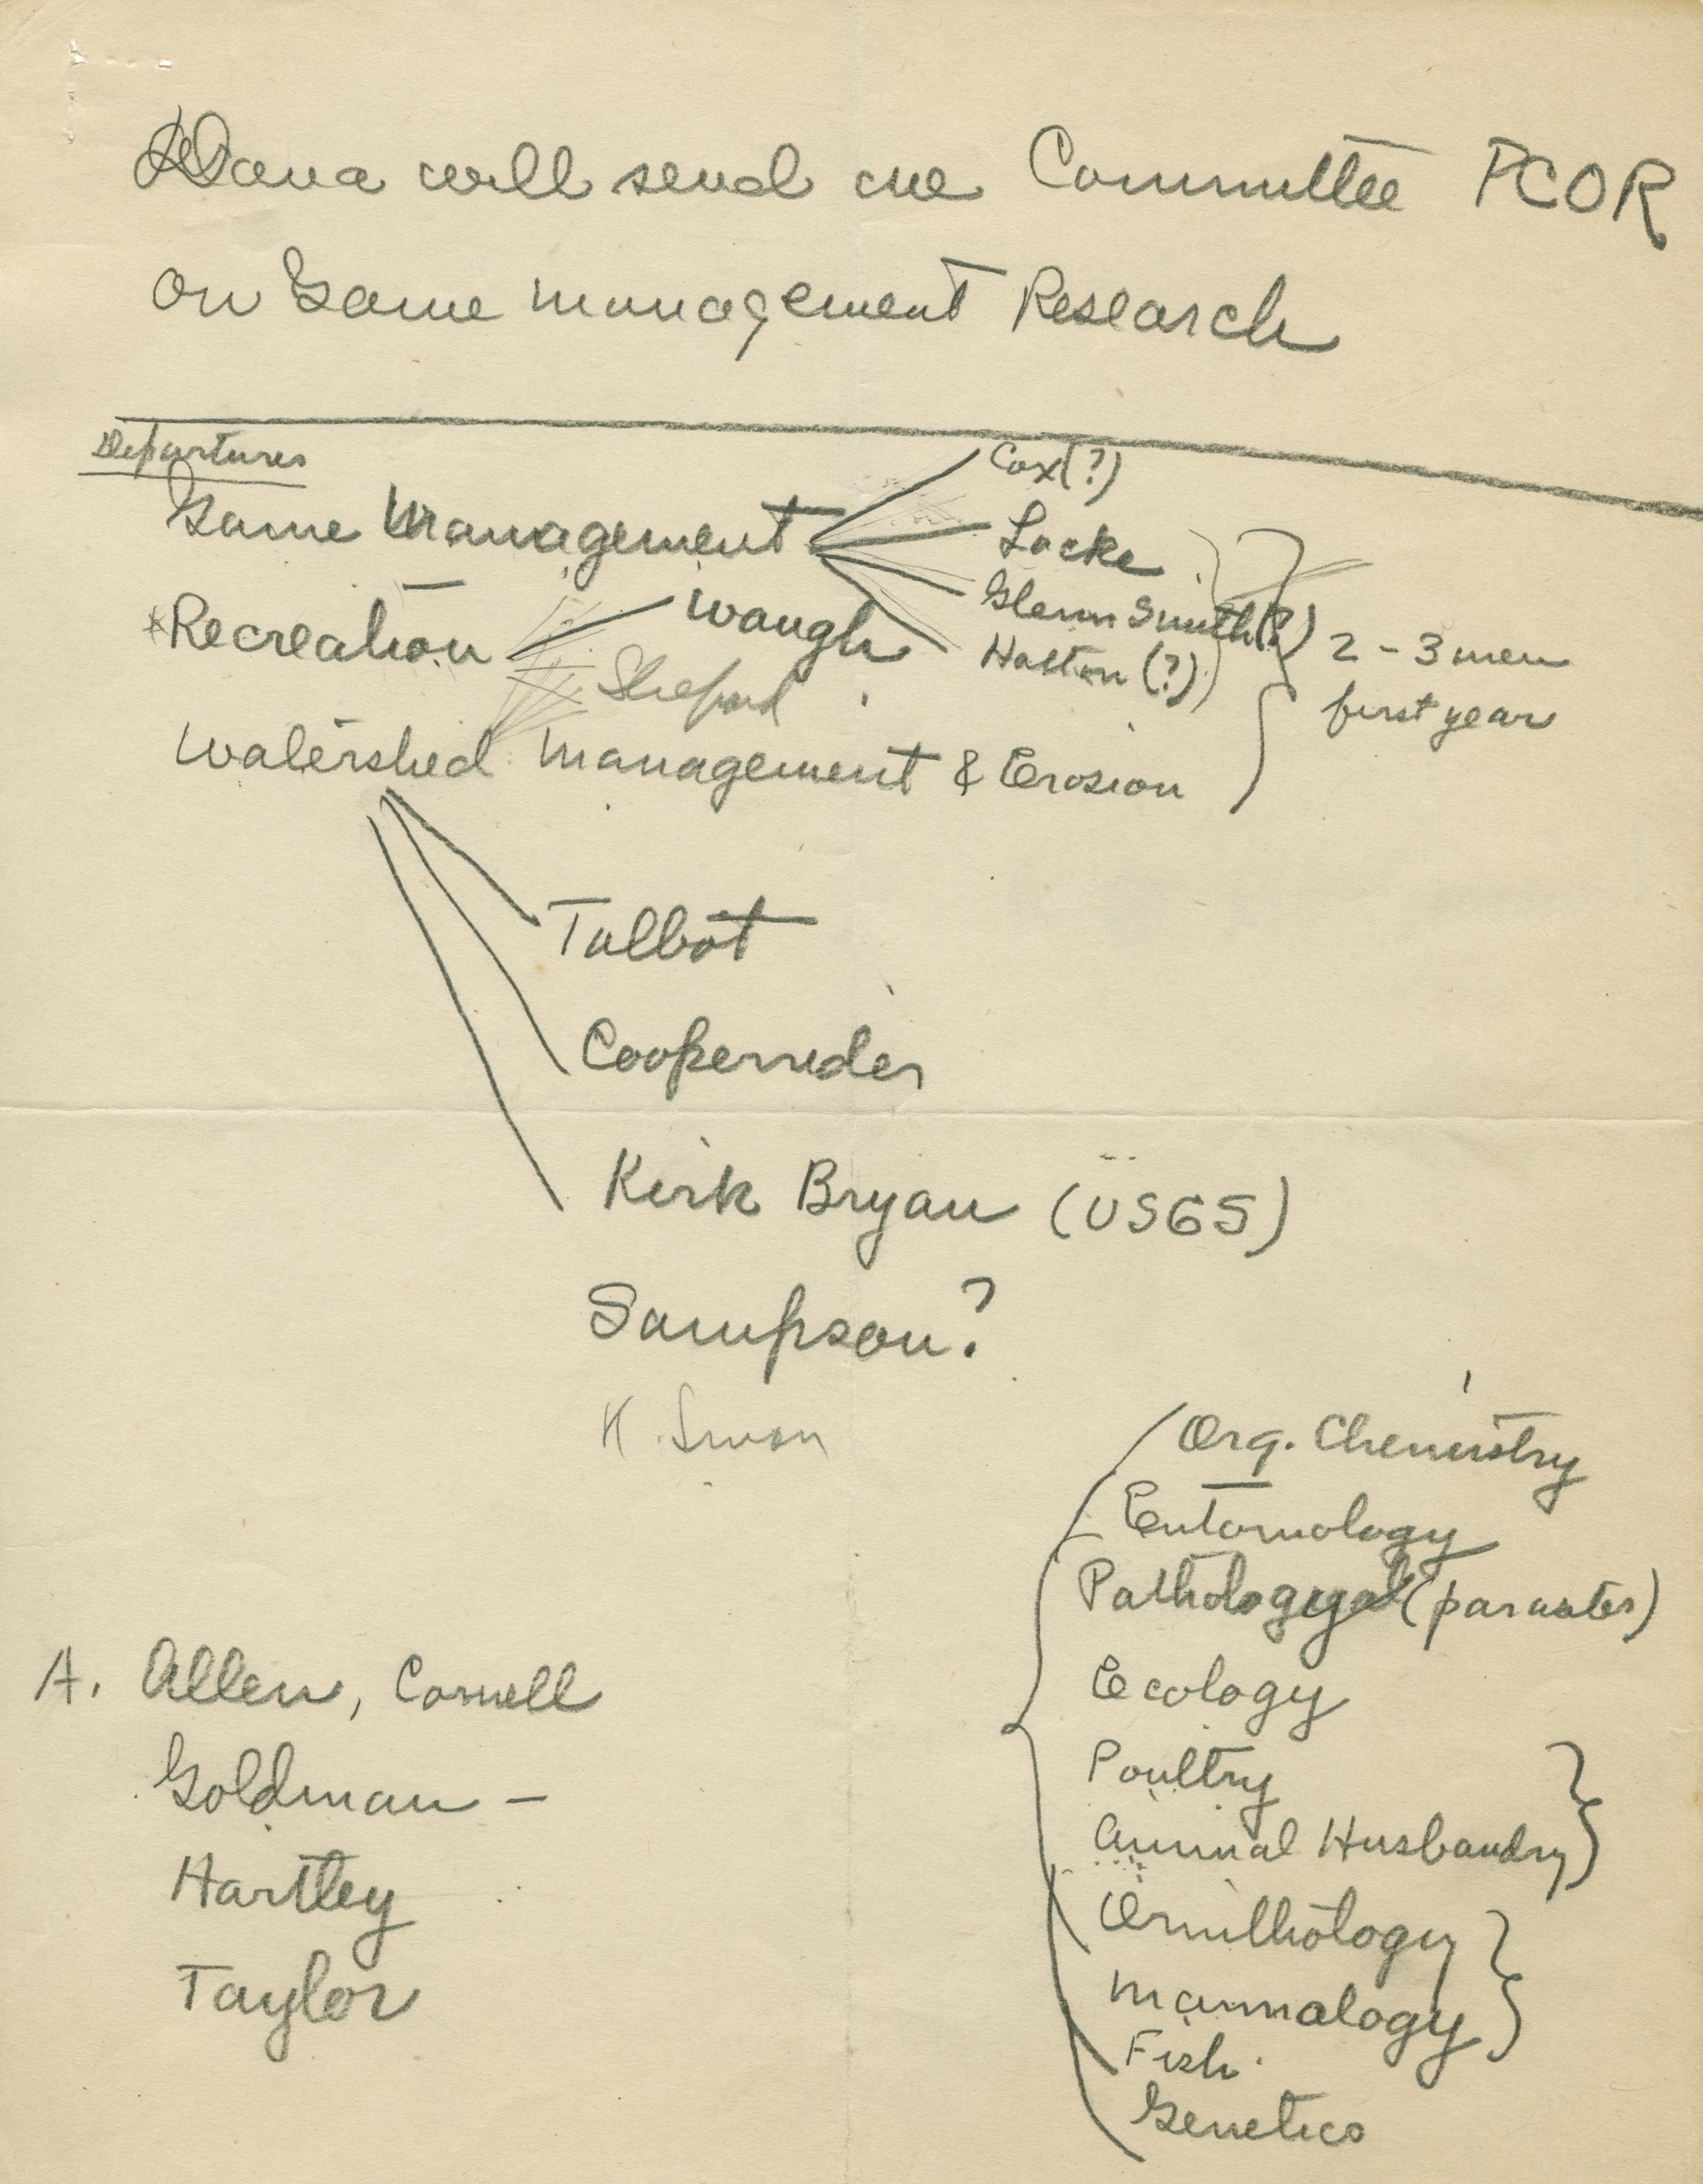 Dana will send me Committee PCOR
on Game management Research
Departures
Game Management
Cox(?)
Locke
Glenn Smith(?)
Hatton (?)
*Recreation
Waugh
Shepard
2 - 3 men
first year
Watershed Management & Erosion
Talbot
Cooperrider
Kirk Bryan (USGS)
Sampson?
Org. Chemistry
Entomology
Pathology (parasites)
Ecology
Poultry
Animal Husbandry
Ornithology
Mammalogy
Fish
Genetics
A. Allen, Cornell
Goldman -
Hartley
Taylor